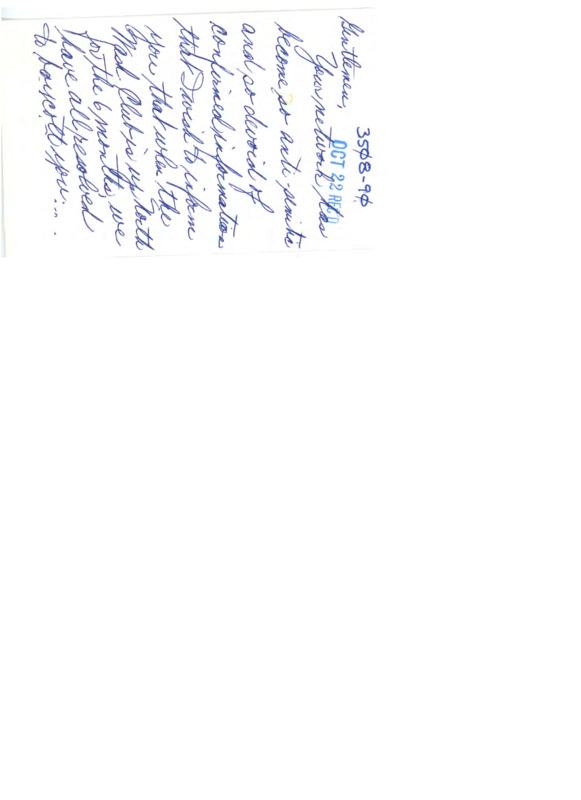 35¢8-9¢
OCT 22 REC'D
Gentlemen,
Your network, has
become so anti-
and so devoid of
confirmed information
that I wish to inform
you that when the
Club is up North
for the 6 months, we
have all resolved
to boycott you....